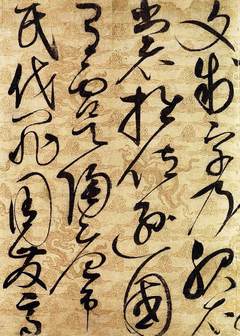 文制字乃服衣
裳推位逊國
有虞陶唐弔
民伐罪周发商